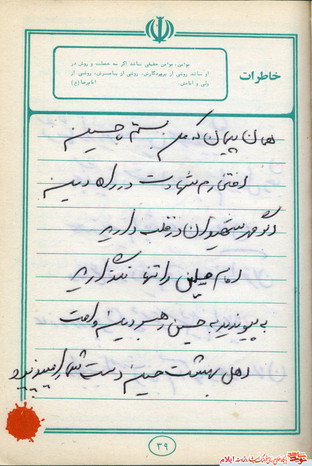 خاطرات
مؤمن، مؤمن حقیقی نمیباشد اگر سه خصلت و روش در
او نباشد روشی از پروردگارش، روشی از پیامبرش، روشی از
ولی و امامش. امام رضا (ع)
همان پیمان که من بستم با حسین
افتخارم شهادت در راه دین
اگر مهر شهیدان در قلب دارید
امام خمینی را تنها نگذارید
به پیوندید به حسین رهبر دین و امت
اهل بهشت حسین دست شما را میبوسد
۳۹
ایلام